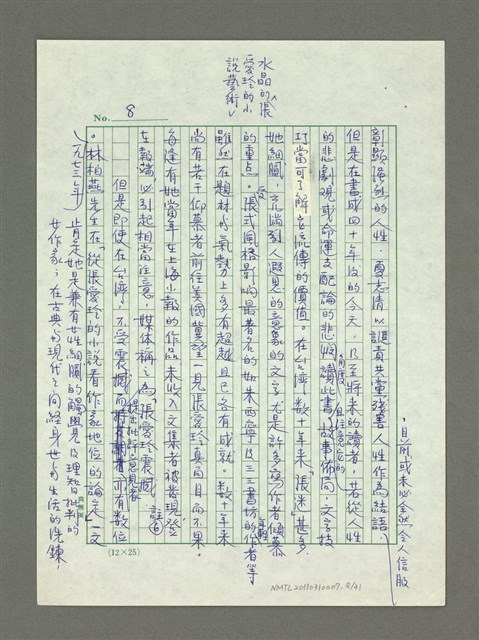 水晶的《張
愛玲的小
說藝術》
No. 8
彰顯強烈的人性，夏志清以譴責共黨殘害人性作為結語，
目前或未必全然令人信服
但是在書成四十年後的今天，乃至將來的讀者，若從人性
的悲劇觀或命運支配論的悲憫角度讀此書，且注意它的故事佈局，文字技
巧，當可了解它流傳的價值。在台灣，數十年來「張迷」甚多，
她細膩、充滿引人遐思的意象的文字尤是許多寫作者傾慕
的重點。受張式風格影響最著名的如朱西甯及三三書坊的年輕作者等，
雖然在題材與氣勢上多有超越且已各有成就。數十年來
尚有若干仰慕者前往美國冀望一見張愛玲真面目而不果。
每逢有她當年在上海小報的作品未收入文集者被發現登
在報端，必引起相當注意，媒體稱之為「張愛玲震撼」。註⑥
但是即使在台灣，不受震撼而提出批評意見者亦有數位
。林柏燕先生在「從張愛玲的小說看作家地位的論定」一文
（一九七三年）肯定她是兼有女性細膩的觸覺及理知批判的
女作家；在古典與現代之間經身世與生活的洗鍊，
(12×25)
NMTL20110310007, 8/41